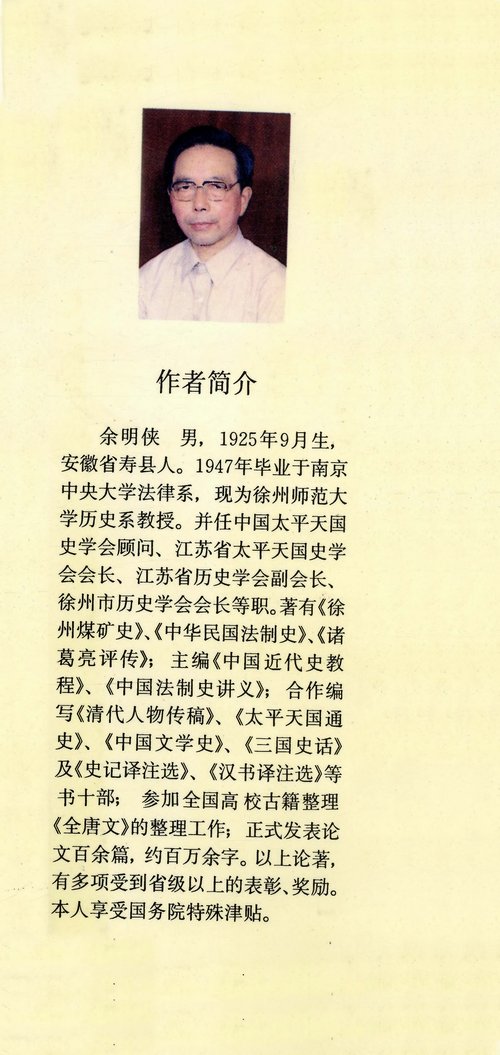 作者简介
余明侠 男，1925年9月生，
安徽省寿县人。1947年毕业于南京
中央大学法律系，现为徐州师范大
学历史系教授。并任中国太平天国
史学会顾问、江苏省太平天国史学
会会长、江苏省历史学会副会长、
徐州市历史学会会长等职。著有《徐
州煤矿史》、《中华民国法制史》、《诸
葛亮评传》；主编《中国近代史教
程》、《中国法制史讲义》；合作编
写《清代人物传稿》、《太平天国通
史》、《中国文学史》、《三国史话》
及《史记译注选》、《汉书译注选》等
书十部；参加全国高校古籍整理
《全唐文》的整理工作；正式发表论
文百余篇，约百万余字。以上论著，
有多项受到省级以上的表彰、奖励。
本人享受国务院特殊津贴。